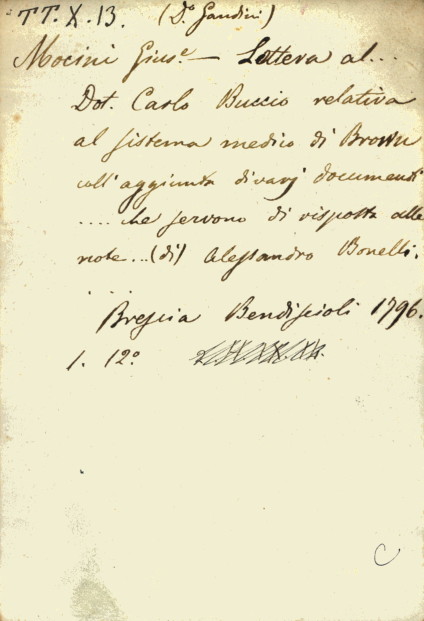 TT. X. 13. (D.º Gandini)
Mocini Gius.e — Lettera al...
Dot. Carlo Buccio relativa
al sistema medico di Brown
coll'aggiunta di varj documenti
.... che servono di risposta alle
note... (di) Alessandro Bonelli.
. . .
Brescia Bendiscioli 1796.
1. 12º
C